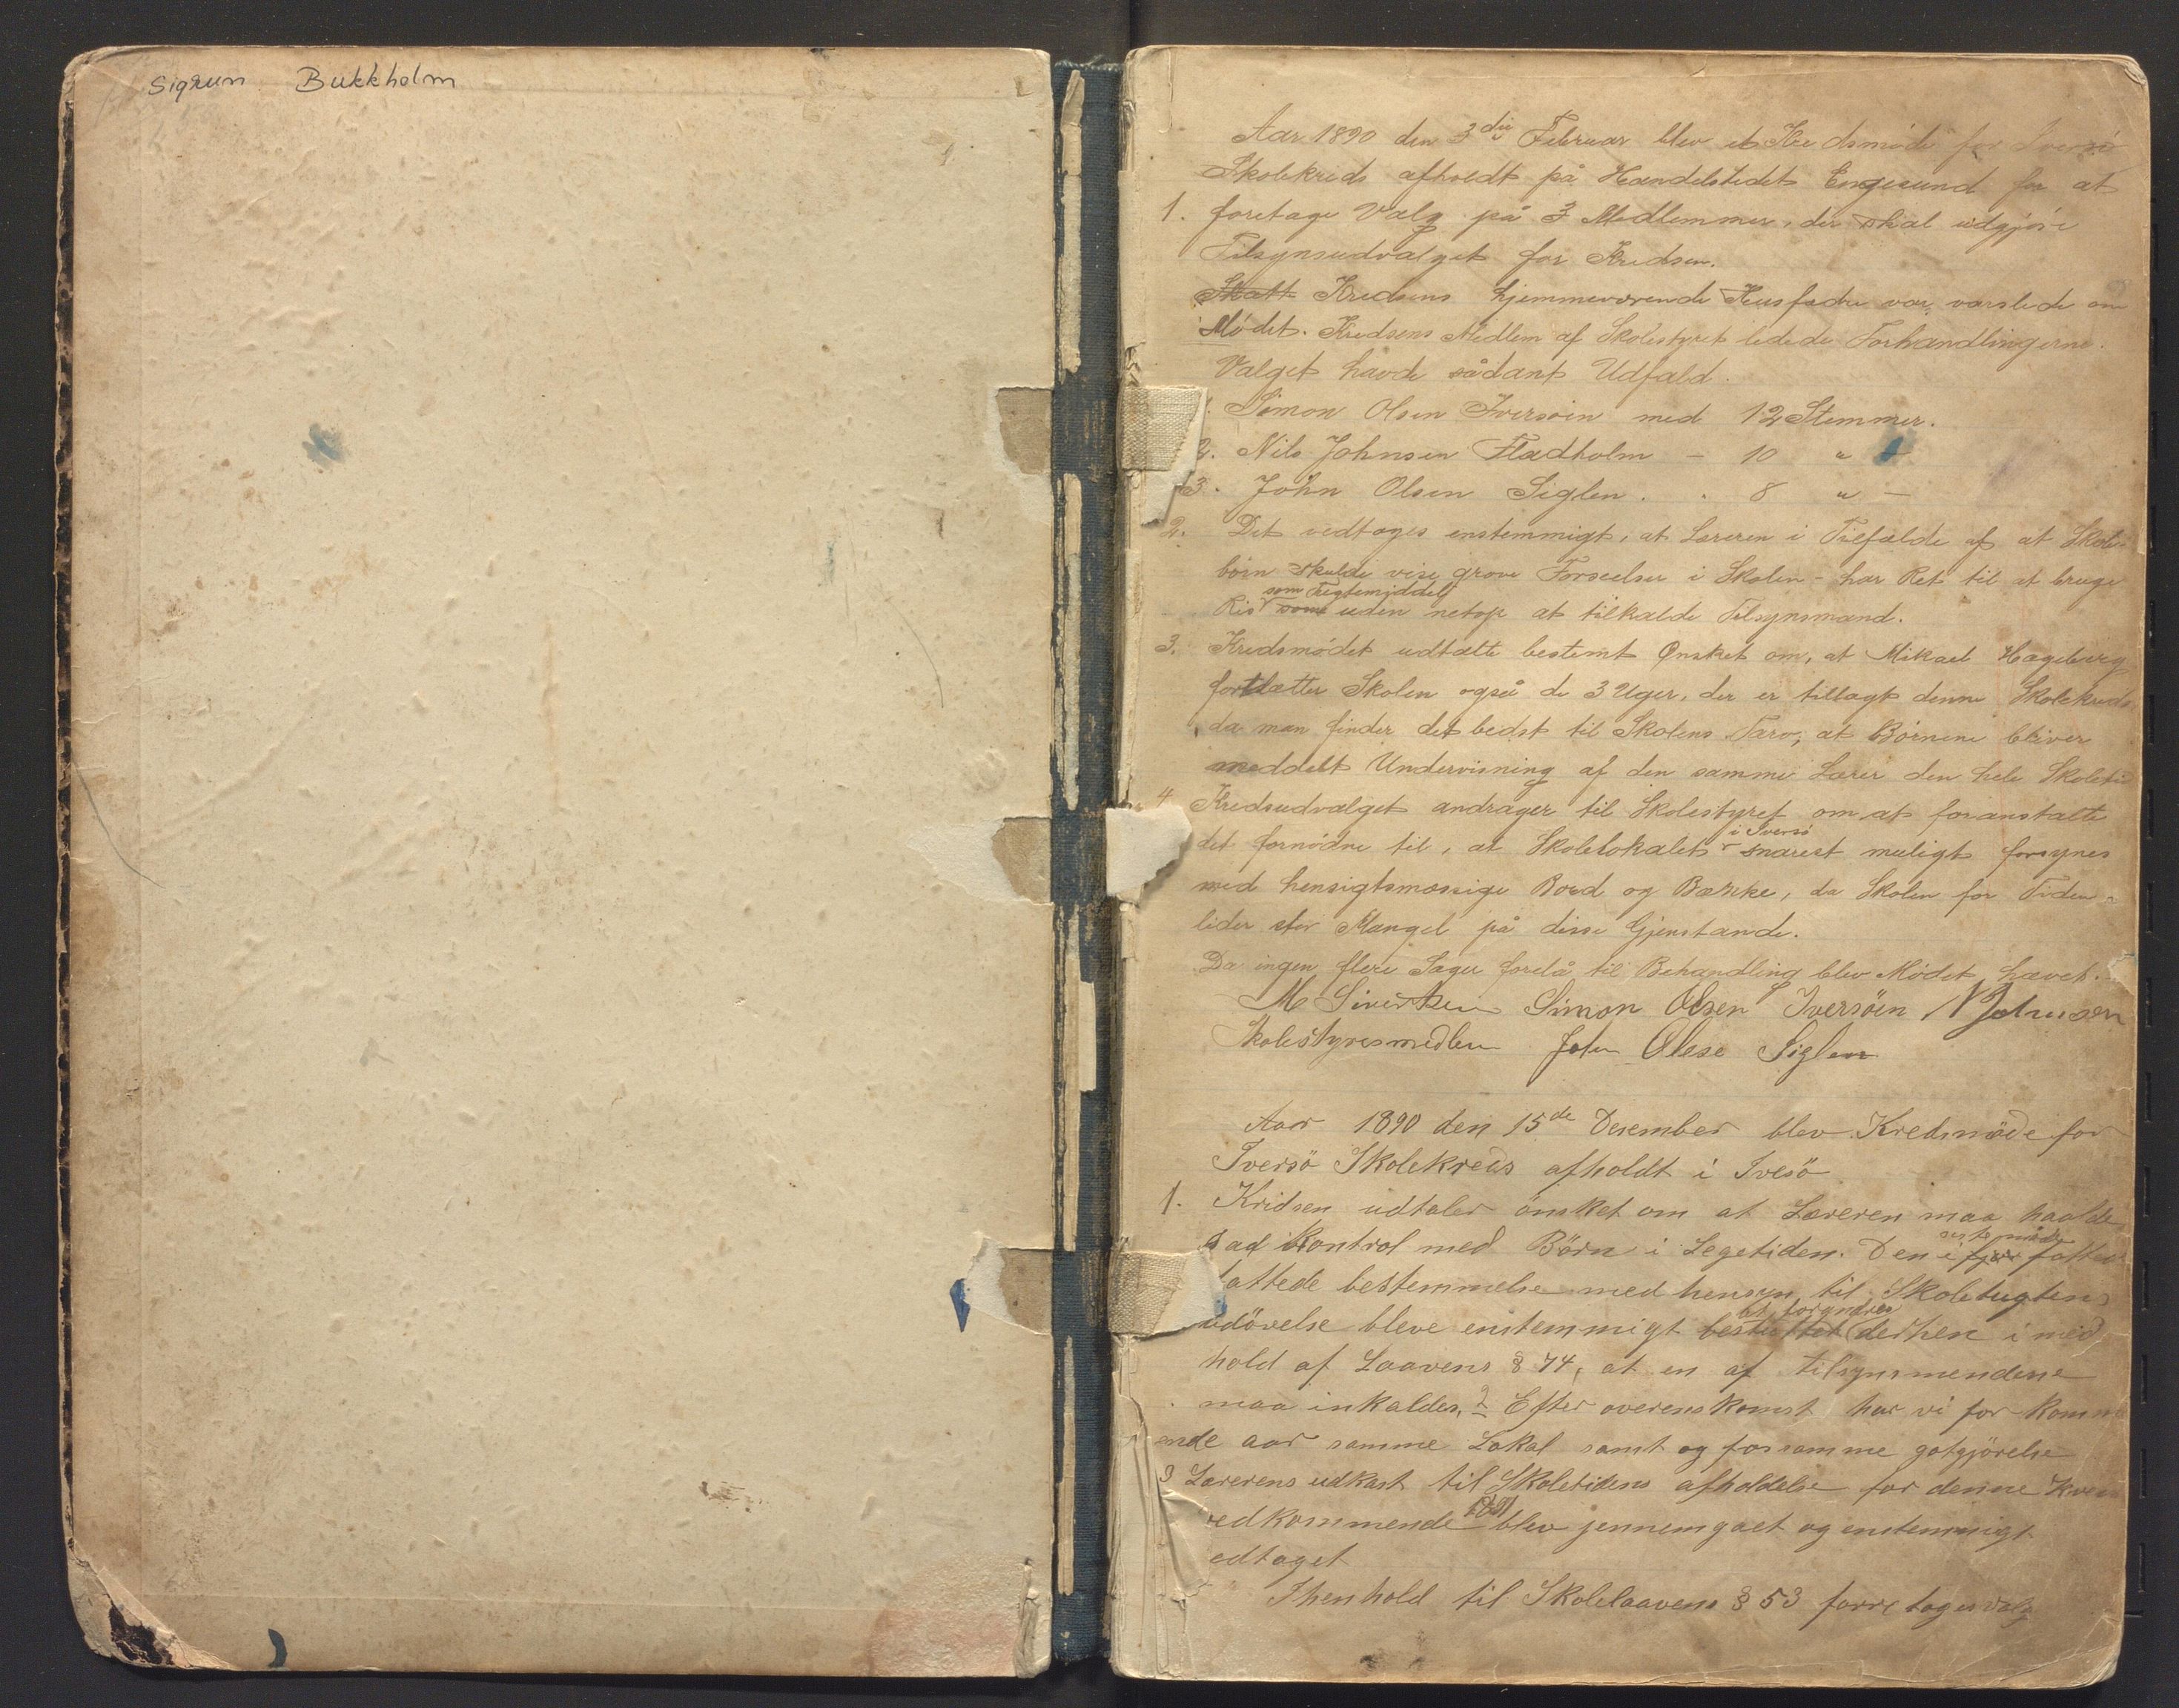 Sigrun Bukkholm
Aar 1890 den 3die Februar blev et Kredsmöde for Iversö
Skolekreds afholdt på Handelstedet Engesund for at
1. foretage Valg på 3 Medlemmer, der skal udgjöre
Tilsynsudvalget for Kredsen.
Kredsens hjemmeværende Husfædre var varslede om
Mödet. Kredsens Medlem af Skolestyret ledede Forhandlingerne.
Valget havde sådant Udfald.
1. Simon Olsen Iversöin med 12 Stemmer.
2. Nils Johnsen Fladholm - 10 " -
3. John Olsen Siglen. " 8 " -
2. Det vedtoges enstemmigt, at Læreren i Tilfælde af at Skole-
börn skulde vise grove Forseelser i Skolen - har Ret til at bruge
som Tugtemiddel
Ris som uden netop at tilkalde Tilsynsmand.
3. Kredsmödet udtalte bestemt Ønsket om, at Mikael Hageberg
fortsætter Skolen også de 3 Uger, der er tillagt denne Skolekreds
da man finder det bedst til Skolens Tarv, at Börnene bliver
meddelt Undervisning af den samme Lærer den hele Skoletid
4 Kredsudvalget andrager til Skolestyret om at foranstalte
i Iversö
det fornödne til, at Skolelokalet snarest muligt forsynes
med hensigtsmæssige Bord og Bænke, da Skolen for Tiden
lider stor Mangel på disse Gjenstande.
Da ingen flere Sager forelå til Behandling blev Mödet hævet.
M Sivertsen Simon Olsen Iversöen N Johnsen
Skolestyresmedlem John Olese Siglen
Aar 1890 den 15de Desember blev Kredsmöde for
Iversö Skolekreds afholdt i Ivesö
1. Kridsen udtaler önsket om at Læreren maa haalde
Kontrol med Börn i Legetiden. Den i fjor
fattede bestemmelse med hensyn til Skoletugtens
at forandres
udövelse bleve enstemmigt bestuttet derhen i med
hold af Laavens § 74, at en af tilsynsmendene
maa inkaldes. 2 Efter overenskomst har vi for komm
ende aar samme Lokal samt og for samme gotgjörelse
3 Lærerens udkast til Skoletidens afholdelse for denne Kreds
vedkommende blev jennemgaet og enstemmigt
vedtaget
I henhold til Skolelaavens § 53 forretoges valg